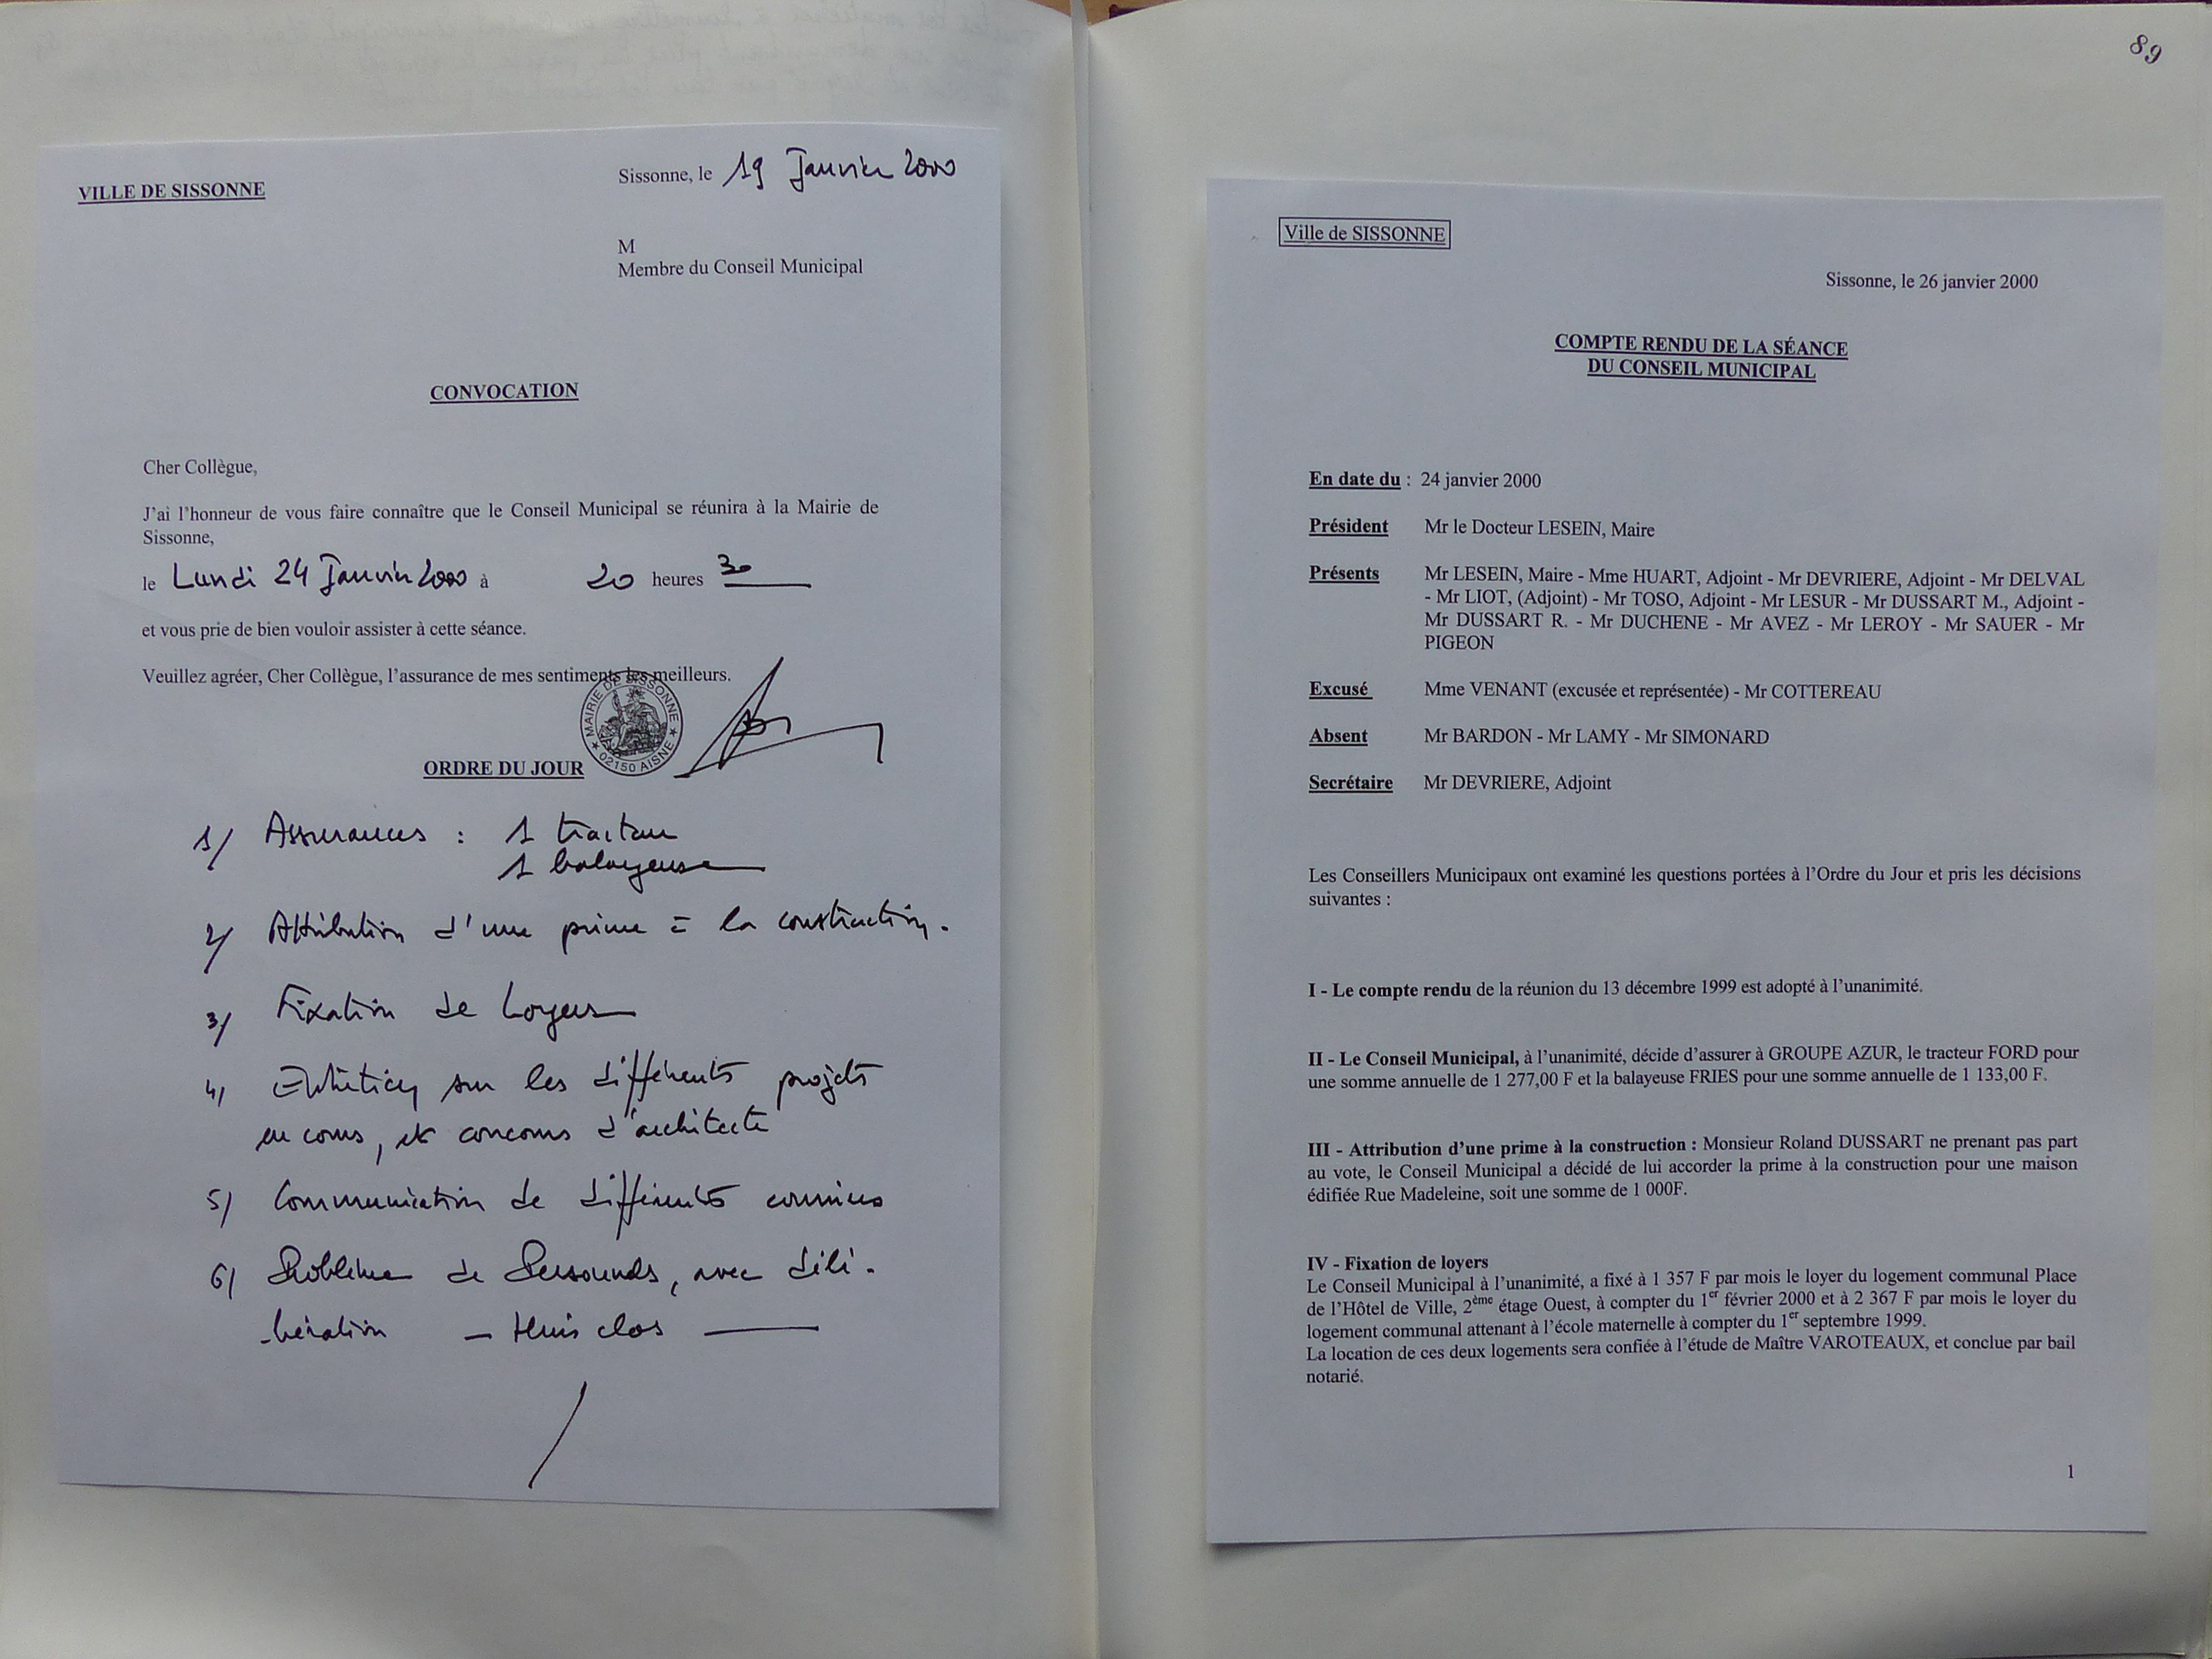 VILLE DE SISSONNE
Sissonne, le 19 Janvier 2000
M
Membre du Conseil Municipal
CONVOCATION
Cher Collègue,
J'ai l'honneur de vous faire connaître que le Conseil Municipal se réunira à la Mairie de
Sissonne,
le Lundi 24 Janvier 2000 à 20 heures 30
et vous prie de bien vouloir assister à cette séance.
Veuillez agréer, Cher Collègue, l'assurance de mes sentiments les meilleurs.
MAIRIE DE SISSONNE ★ 02150 AISNE ★
ORDRE DU JOUR
1/ Assurances : 1 tracteur
1 balayeuse
2/ Attribution d'une prime à la construction.
3/ Fixation de loyers
4/ Entretien sur les différents projets
en cours, et concours d'architecte
5/ Communication de différents courriers
6/ Problème de Personnels, avec déli-
bération - Huis clos
89
Ville de SISSONNE
Sissonne, le 26 janvier 2000
COMPTE RENDU DE LA SÉANCE
DU CONSEIL MUNICIPAL
En date du : 24 janvier 2000
Président Mr le Docteur LESEIN, Maire
Présents Mr LESEIN, Maire - Mme HUART, Adjoint - Mr DEVRIERE, Adjoint - Mr DELVAL
- Mr LIOT, (Adjoint) - Mr TOSO, Adjoint - Mr LESUR - Mr DUSSART M., Adjoint -
Mr DUSSART R. - Mr DUCHENE - Mr AVEZ - Mr LEROY - Mr SAUER - Mr
PIGEON
Excusé Mme VENANT (excusée et représentée) - Mr COTTEREAU
Absent Mr BARDON - Mr LAMY - Mr SIMONARD
Secrétaire Mr DEVRIERE, Adjoint
Les Conseillers Municipaux ont examiné les questions portées à l'Ordre du Jour et pris les décisions
suivantes :
I - Le compte rendu de la réunion du 13 décembre 1999 est adopté à l'unanimité.
II - Le Conseil Municipal, à l'unanimité, décide d'assurer à GROUPE AZUR, le tracteur FORD pour
une somme annuelle de 1 277,00 F et la balayeuse FRIES pour une somme annuelle de 1 133,00 F.
III - Attribution d'une prime à la construction : Monsieur Roland DUSSART ne prenant pas part
au vote, le Conseil Municipal a décidé de lui accorder la prime à la construction pour une maison
édifiée Rue Madeleine, soit une somme de 1 000F.
IV - Fixation de loyers
Le Conseil Municipal à l'unanimité, a fixé à 1 357 F par mois le loyer du logement communal Place
de l'Hôtel de Ville, 2ème étage Ouest, à compter du 1er février 2000 et à 2 367 F par mois le loyer du
logement communal attenant à l'école maternelle à compter du 1er septembre 1999.
La location de ces deux logements sera confiée à l'étude de Maître VAROTEAUX, et conclue par bail
notarié.
1